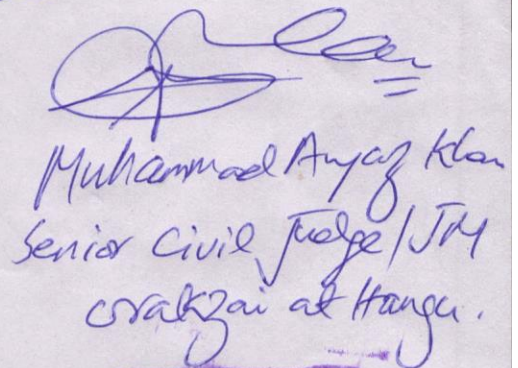 Muhammad Amyaz Khan
Senior Civil Judge/JM
orakzai at Hangu.